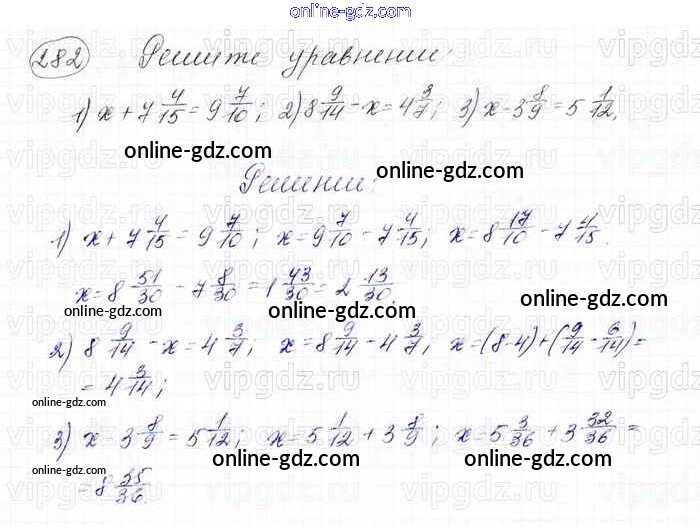 online-gdz.com
282 Решите уравнения:
1) x + 7 4/15 = 9 7/10; 2) 8 9/14 - x = 4 3/7; 3) x - 3 8/9 = 5 1/12.
online-gdz.com online-gdz.com
Решение:
online-gdz.com
1) x + 7 4/15 = 9 7/10; x = 9 7/10 - 7 4/15; x = 8 17/10 - 7 4/15.
x = 8 51/30 - 7 8/30 = 1 43/30 = 2 13/30.
online-gdz.com online-gdz.com online-gdz.com
2) 8 9/14 - x = 4 3/7; x = 8 9/14 - 4 3/7; x = (8-4) + (9/14 - 6/14) =
= 4 3/14;
online-gdz.com online-gdz.com
3) x - 3 8/9 = 5 1/12; x = 5 1/12 + 3 8/9; x = 5 3/36 + 3 32/36 =
online-gdz.com online-gdz.com online-gdz.com
= 8 35/36.